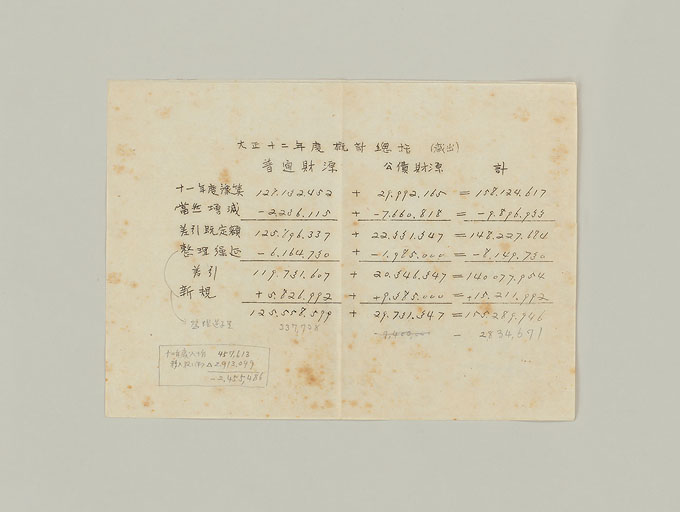 大正十二年度概計總括 (歳出)
普通財源 公債財源 計
十一年度豫算 128.132.452 + 29.992.165 = 158.124.617
當然増減 -2.236.115 + -7.660.818 = -9.896.933
差引既定額 125.896.337 + 22.331.347 = 148.227.684
整理繰延 -6.164.730 + -1.985.000 = -8.149.730
差引 119.731.607 + 20.346.347 = 140.077.954
新規 +5.826.992 + +9.385.000 = +15.211.992
125.558.599 + 29.731.347 = 155.289.946
337,738 -7,400,000 - 2834,671
457,613
2,913,099
-2,455,486